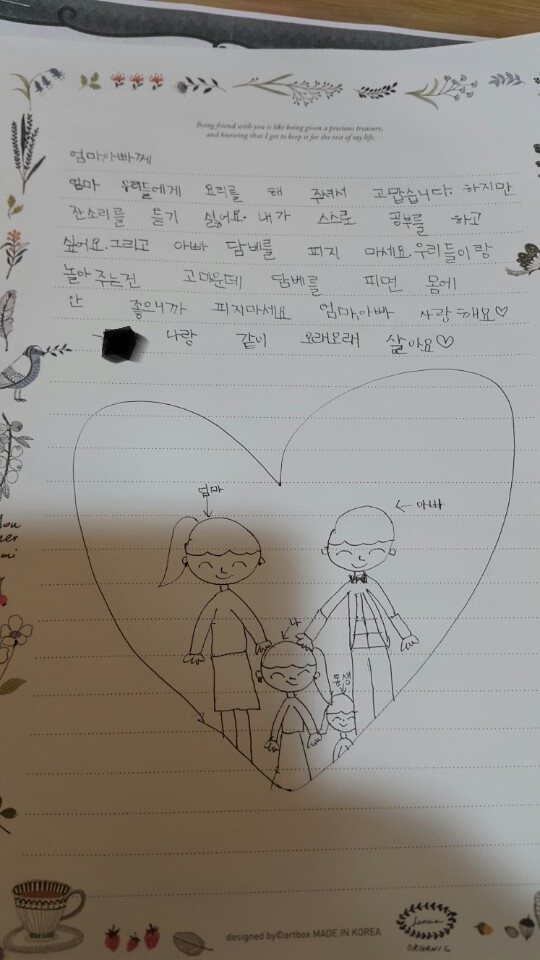 Being friend with you is like being given a precious treasure,
and knowing that I get to keep it for the rest of my life.
엄마,아빠께
엄마 우리들에게 요리를 해 주셔서 고맙습니다. 하지만
잔소리를 듣기 싫어요. 내가 스스로 공부를 하고
싶어요. 그리고 아빠 담베를 피지 마세요. 우리들이랑
놀아 주는건 고마운데 담베를 피면 몸에
안 좋으니까 피지마세요 엄마,아빠 사랑해요♡
나랑 같이 오래오래 살아요♡
엄마
아빠
나
동생
designed by©artbox MADE IN KOREA
ORGANIC